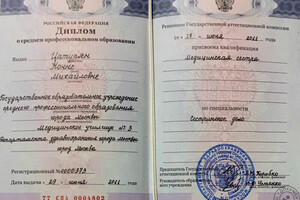 РОССИЙСКАЯ ФЕДЕРАЦИЯ
Диплом
о среднем профессиональном образовании
Выдан
Михайловне
Государственное образовательное учреждение
среднего профессионального образования
города Москвы
Медицинское училище № 3
Департамента здравоохранения города Москвы
город Москва
Регистрационный №0000373
Дата выдачи «29» июня 2011 г.
77 СПА 0004802
Решением Государственной аттестационной комиссии
от «28» июня 2011 года
присвоена квалификация
Медицинская сестра
по специальности
Сестринское дело
Председатель Государственной
аттестационной комиссии